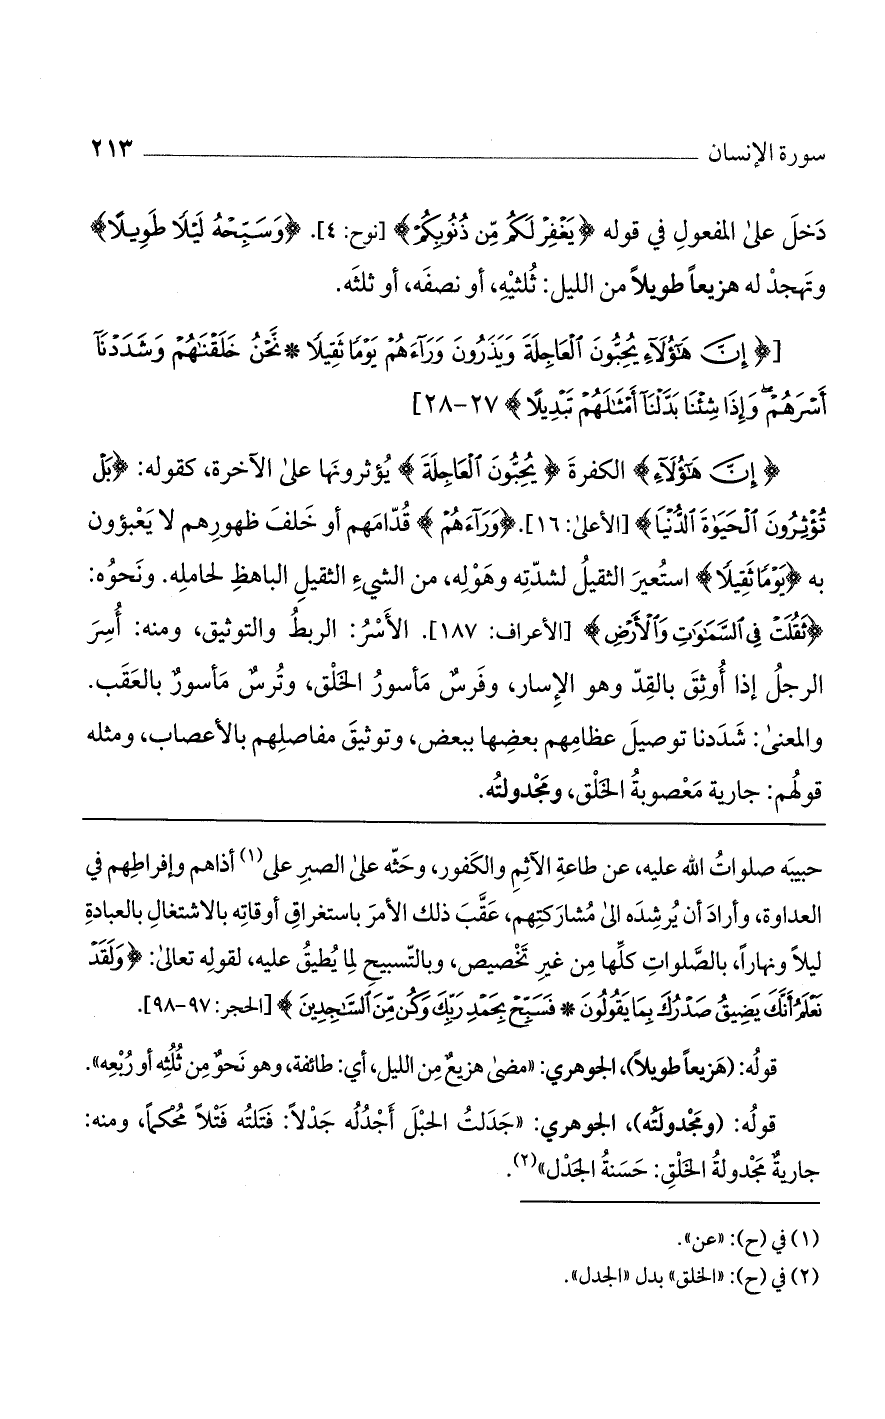 سورة الإنسان ــــــــــــــــــــــــــــــــ ٢١٣
دَخلَ على المفعولِ في قوله ﴿يَغْفِرْ لَكُم مِّن ذُنُوبِكُمْ﴾ [نوح: ٤]. ﴿وَسَبِّحْهُ لَيْلًا طَوِيلًا﴾
وتهجدْ له هزيعاً طويلاً من الليل: ثُلثيْهِ، أو نصفَه، أو ثلثَه.
[﴿إِنَّ هَٰٓؤُلَآءِ يُحِبُّونَ ٱلْعَاجِلَةَ وَيَذَرُونَ وَرَآءَهُمْ يَوْمًا ثَقِيلًا * نَّحْنُ خَلَقْنَٰهُمْ وَشَدَدْنَآ
أَسْرَهُمْ ۖ وَإِذَا شِئْنَا بَدَّلْنَآ أَمْثَٰلَهُمْ تَبْدِيلًا﴾ ٢٧-٢٨]
﴿إِنَّ هَٰٓؤُلَآءِ﴾ الكفرةَ ﴿يُحِبُّونَ ٱلْعَاجِلَةَ﴾ يُؤثرونَها على الآخرة، كقوله: ﴿بَلْ
تُؤْثِرُونَ ٱلْحَيَوٰةَ ٱلدُّنْيَا﴾ [الأعلى: ١٦]. ﴿وَرَآءَهُمْ﴾ قُدّامَهم أو خَلفَ ظهورِهم لا يَعْبؤون
به ﴿يَوْمًا ثَقِيلًا﴾ استُعيرَ الثقيلُ لشدّتِه وهَوْلِه، من الشيءِ الثقيلِ الباهظِ لحاملِه. ونَحوُه:
﴿ثَقُلَتْ فِي ٱلسَّمَٰوَٰتِ وَٱلْأَرْضِ﴾ [الأعراف: ١٨٧]. الأَسْرُ: الربطُ والتوثيق، ومنه: أُسِرَ
الرجلُ إذا أُوثِقَ بالقِدّ وهو الإسار، وفَرسٌ مَأسورُ الخَلْق، وتُرسٌ مَأسورٌ بالعَقَب.
والمعنى: شَدَدنا توصيلَ عظامِهم بعضِها ببعض، وتوثيقَ مفاصلِهم بالأعصاب، ومثله
قولُهم: جارية مَعْصوبةُ الخَلْق، ومَجْدولتُه.
حبيبَه صلواتُ الله عليه، عن طاعةِ الآثِمِ والكَفور، وحَثّه على الصبرِ على(١) أذاهم وإفراطِهم في
العداوة، وأرادَ أن يُرشِدَه الى مُشارَكتِهم، عَقَّبَ ذلك الأمرَ باستغراقِ أوقاتِه بالاشتغالِ بالعبادةِ
ليلاً ونهاراً، بالصَّلواتِ كلِّها مِن غيرِ تَخْصيص، وبالتّسبيحِ لِما يُطيقُ عليه، لقولِه تعالى: ﴿وَلَقَدْ
نَعْلَمُ أَنَّكَ يَضِيقُ صَدْرُكَ بِمَا يَقُولُونَ * فَسَبِّحْ بِحَمْدِ رَبِّكَ وَكُن مِّنَ ٱلسَّٰجِدِينَ﴾ [الحجر: ٩٧-٩٨].
قولُه: (هَزيعاً طويلاً)، الجوهري: «مضى هزيعٌ مِن الليل، أي: طائفة، وهو نَحوٌ مِن ثُلُثِه أو رُبْعِه».
قولُه: (ومَجْدولَتُه)، الجوهري: «جَدَلتُ الحبْلَ أَجْدُلُه جَدْلاً: فَتَلتُه فَتْلاً مُحْكماً، ومنه:
جاريةٌ مَجْدولةُ الخَلْقِ: حَسَنةُ الجَدْل»(٢).
(١) في (ح): «عن».
(٢) في (ح): «الخلق» بدل «الجدل».